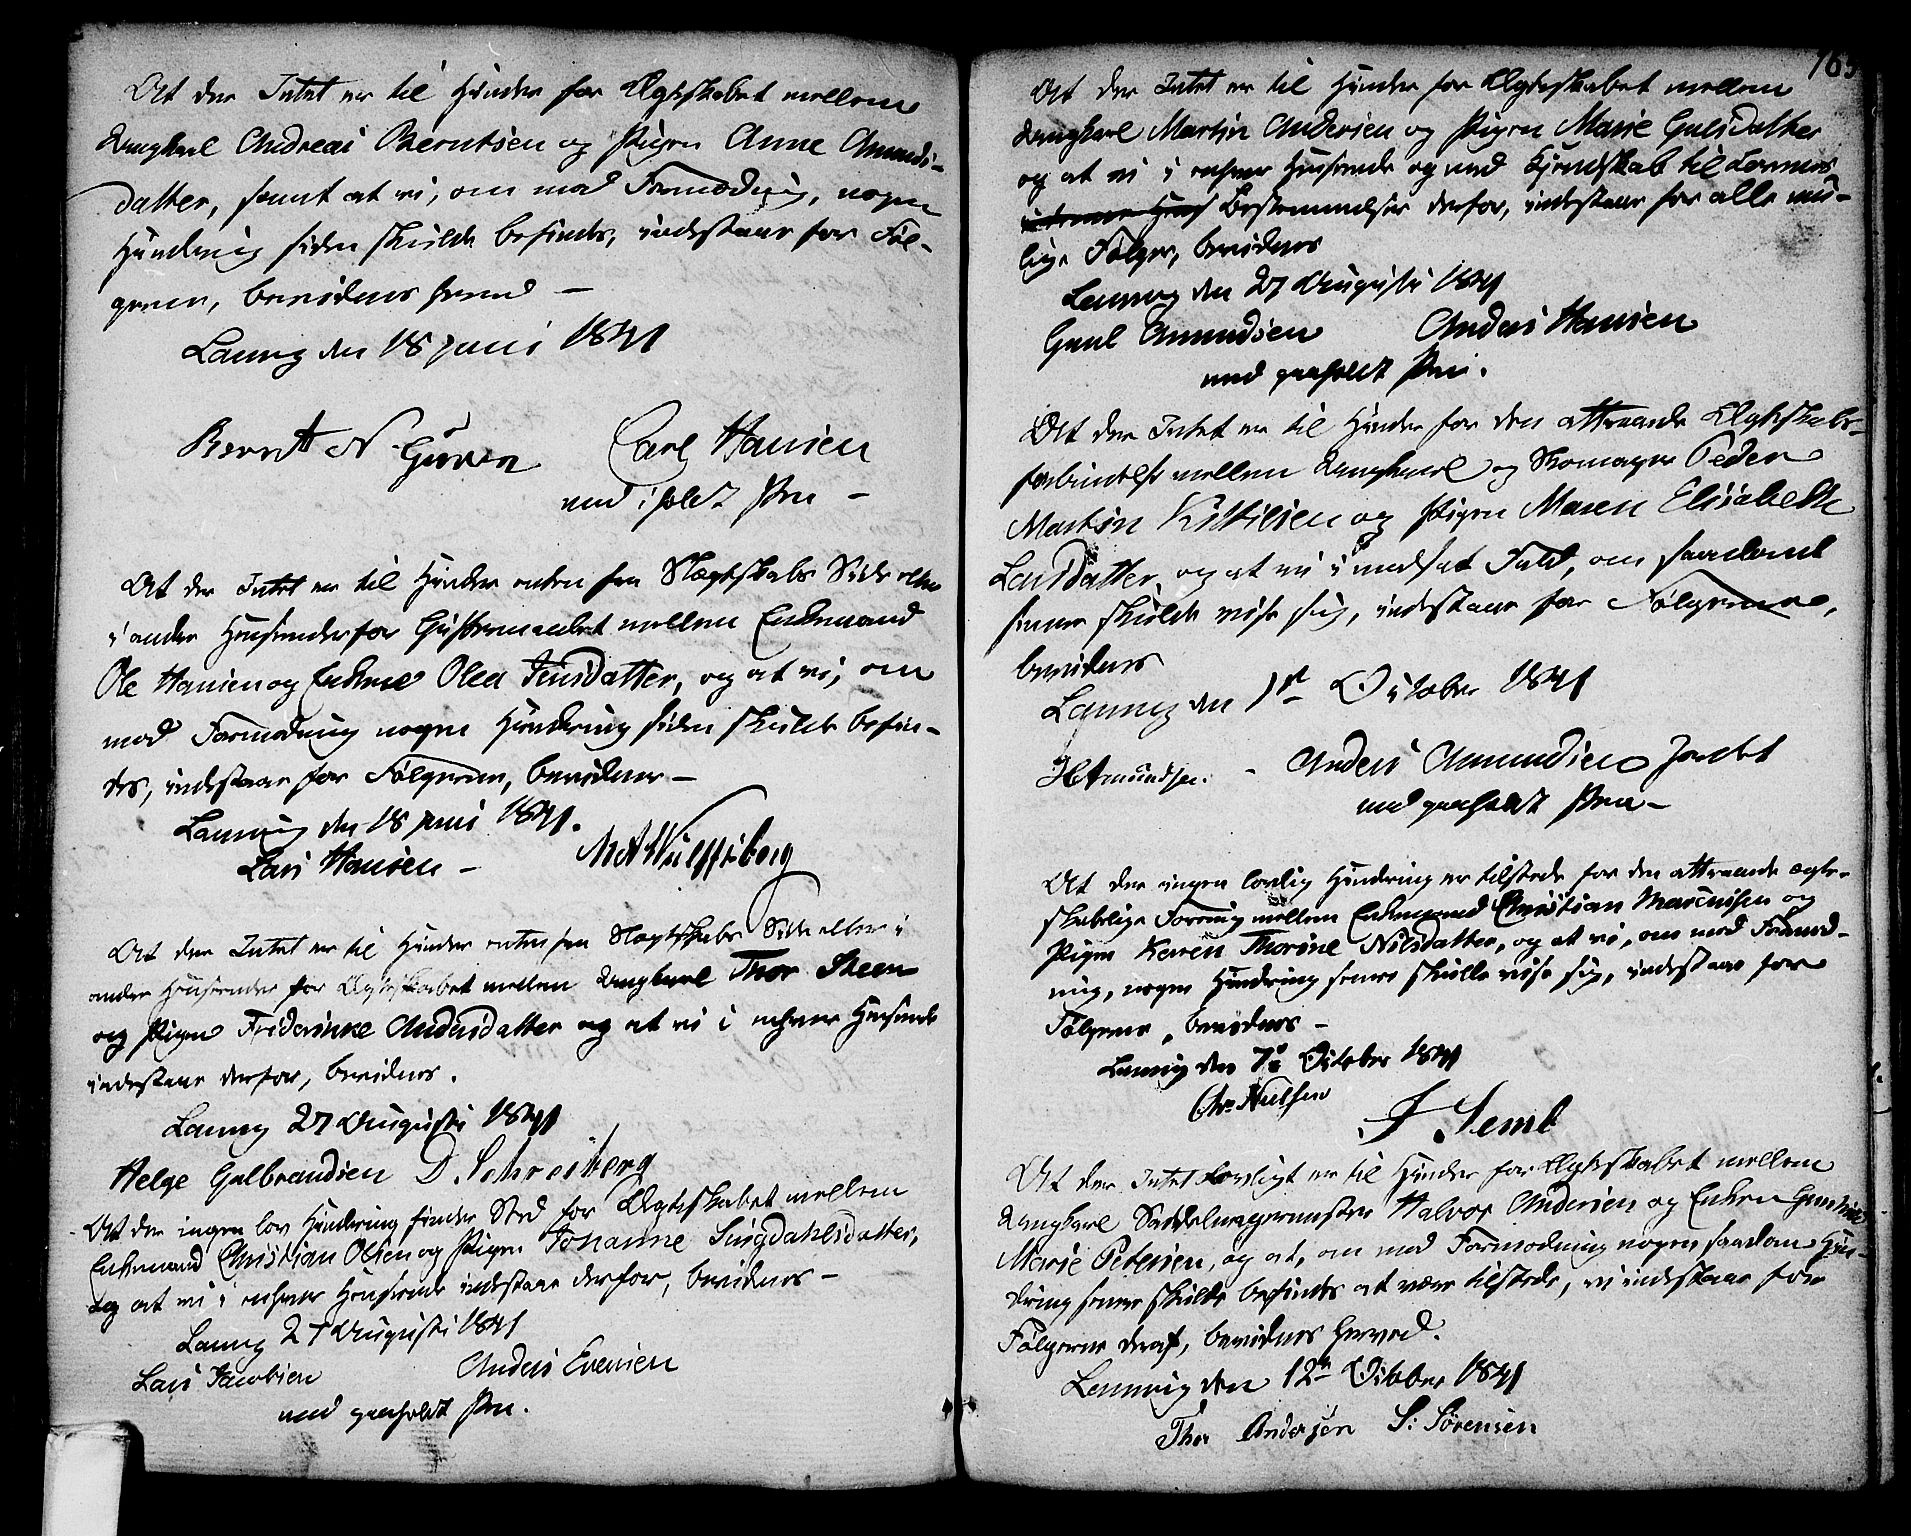 At der Intet er til Hinder for Ægteskabet mellem
Ungkarl Andreas Berntsen og Pigen Anne Amunds-
datter, samt at vi, om mod Formodning, nogen
Hindring siden skulde befindes, indestaar for Føl-
gerne, bevidnes herved –
Laurvig den 18 Juni 1841
Bernt N. Carl Hansen
med iholdt Pen –
At der Intet er til Hinder enten fra Slægtskabs Side eller
i anden Henseende for Giftermaalet mellem Enkemand
Ole Hansen og Enken Olea Jensdatter, og at vi, om
mod Formodning nogen Hindring siden skulde befin-
des, indestaar for Følgerne, bevidnes –
Laurvig den 18 Juni 1841.
Lars Hansen – M A Wulfsberg
At der Intet er til Hinder enten fra Slægtskabs Side eller i
anden Henseende for Ægteskabet mellem Ungkarl Thor Steen
og Pigen Friderikke Andersdatter og at vi i enhver Henseende
indestaar derfor, bevidnes.
Laurvig 27 Augusti 1841
Helge Gulbrandsen D. Schreiberg
At der ingen lov Hindring finder Sted for Ægteskabet mellem
Enkemand Christian Olsen og Pigen Johanne Singdahlsdatter,
og at vi i enhver Henseende indestaar derfor, bevidnes –
Laurvig 27 Augusti 1841
Lars Jacobsen Anders Evensen
med paaholdt Pen.
165
At der Intet er til Hinder for Ægteskabet mellem
Ungkarl Martin Andersen og Pigen Marie Gulsdatter
og at vi i enhver Henseende og med Kjendskab til Lovens
Bestemmelser derfor, indestaar for alle mu-
lige Følger, bevidnes
Laurvig den 27 Augusti 1841
Guul Amundsen Anders Hansen
med paaholdt Pen.
At der Intet er til Hinder for den attraaede Ægteskabs-
forbindelse mellem Ungkarl og Skomager Peder
Martin Kittilsen og Pigen Maren Elisabeth
Larsdatter, og at vi i modsat Fald, om saadant
senere skulde vise sig, indestaar for Følgerne,
bevidnes
Laurvig den 1st October 1841
H Amundsen. – Anders Amundsen
med paaholdt Pen –
At der ingen lovlig Hindring er tilstede for den attraaede ægte-
skabelige Forening mellem Enkemand Christian Marcussen og
Pigen Karen Thorine Nilsdatter, og at vi, om mod Formod-
ning, nogen Hindring senere skulle vise sig, indestaar for
Følgerne, bevidnes –
Laurvig den 7de October 1841
Chr. Nielsen
F Semb
At der Intet Lovligt er til Hinder for Ægteskabet mellem
Ungkarl Saddelmagermester Halvor Andersen og Enken
Marie Petersen, og at, om mod Formodning nogen saadan Hin-
dring senere skulde befindes at være tilstede, vi indestaar for
Følgerne deraf, bevidnes herved.
Laurvig den 12te October 1841
Thor Andersen S: Sørensen